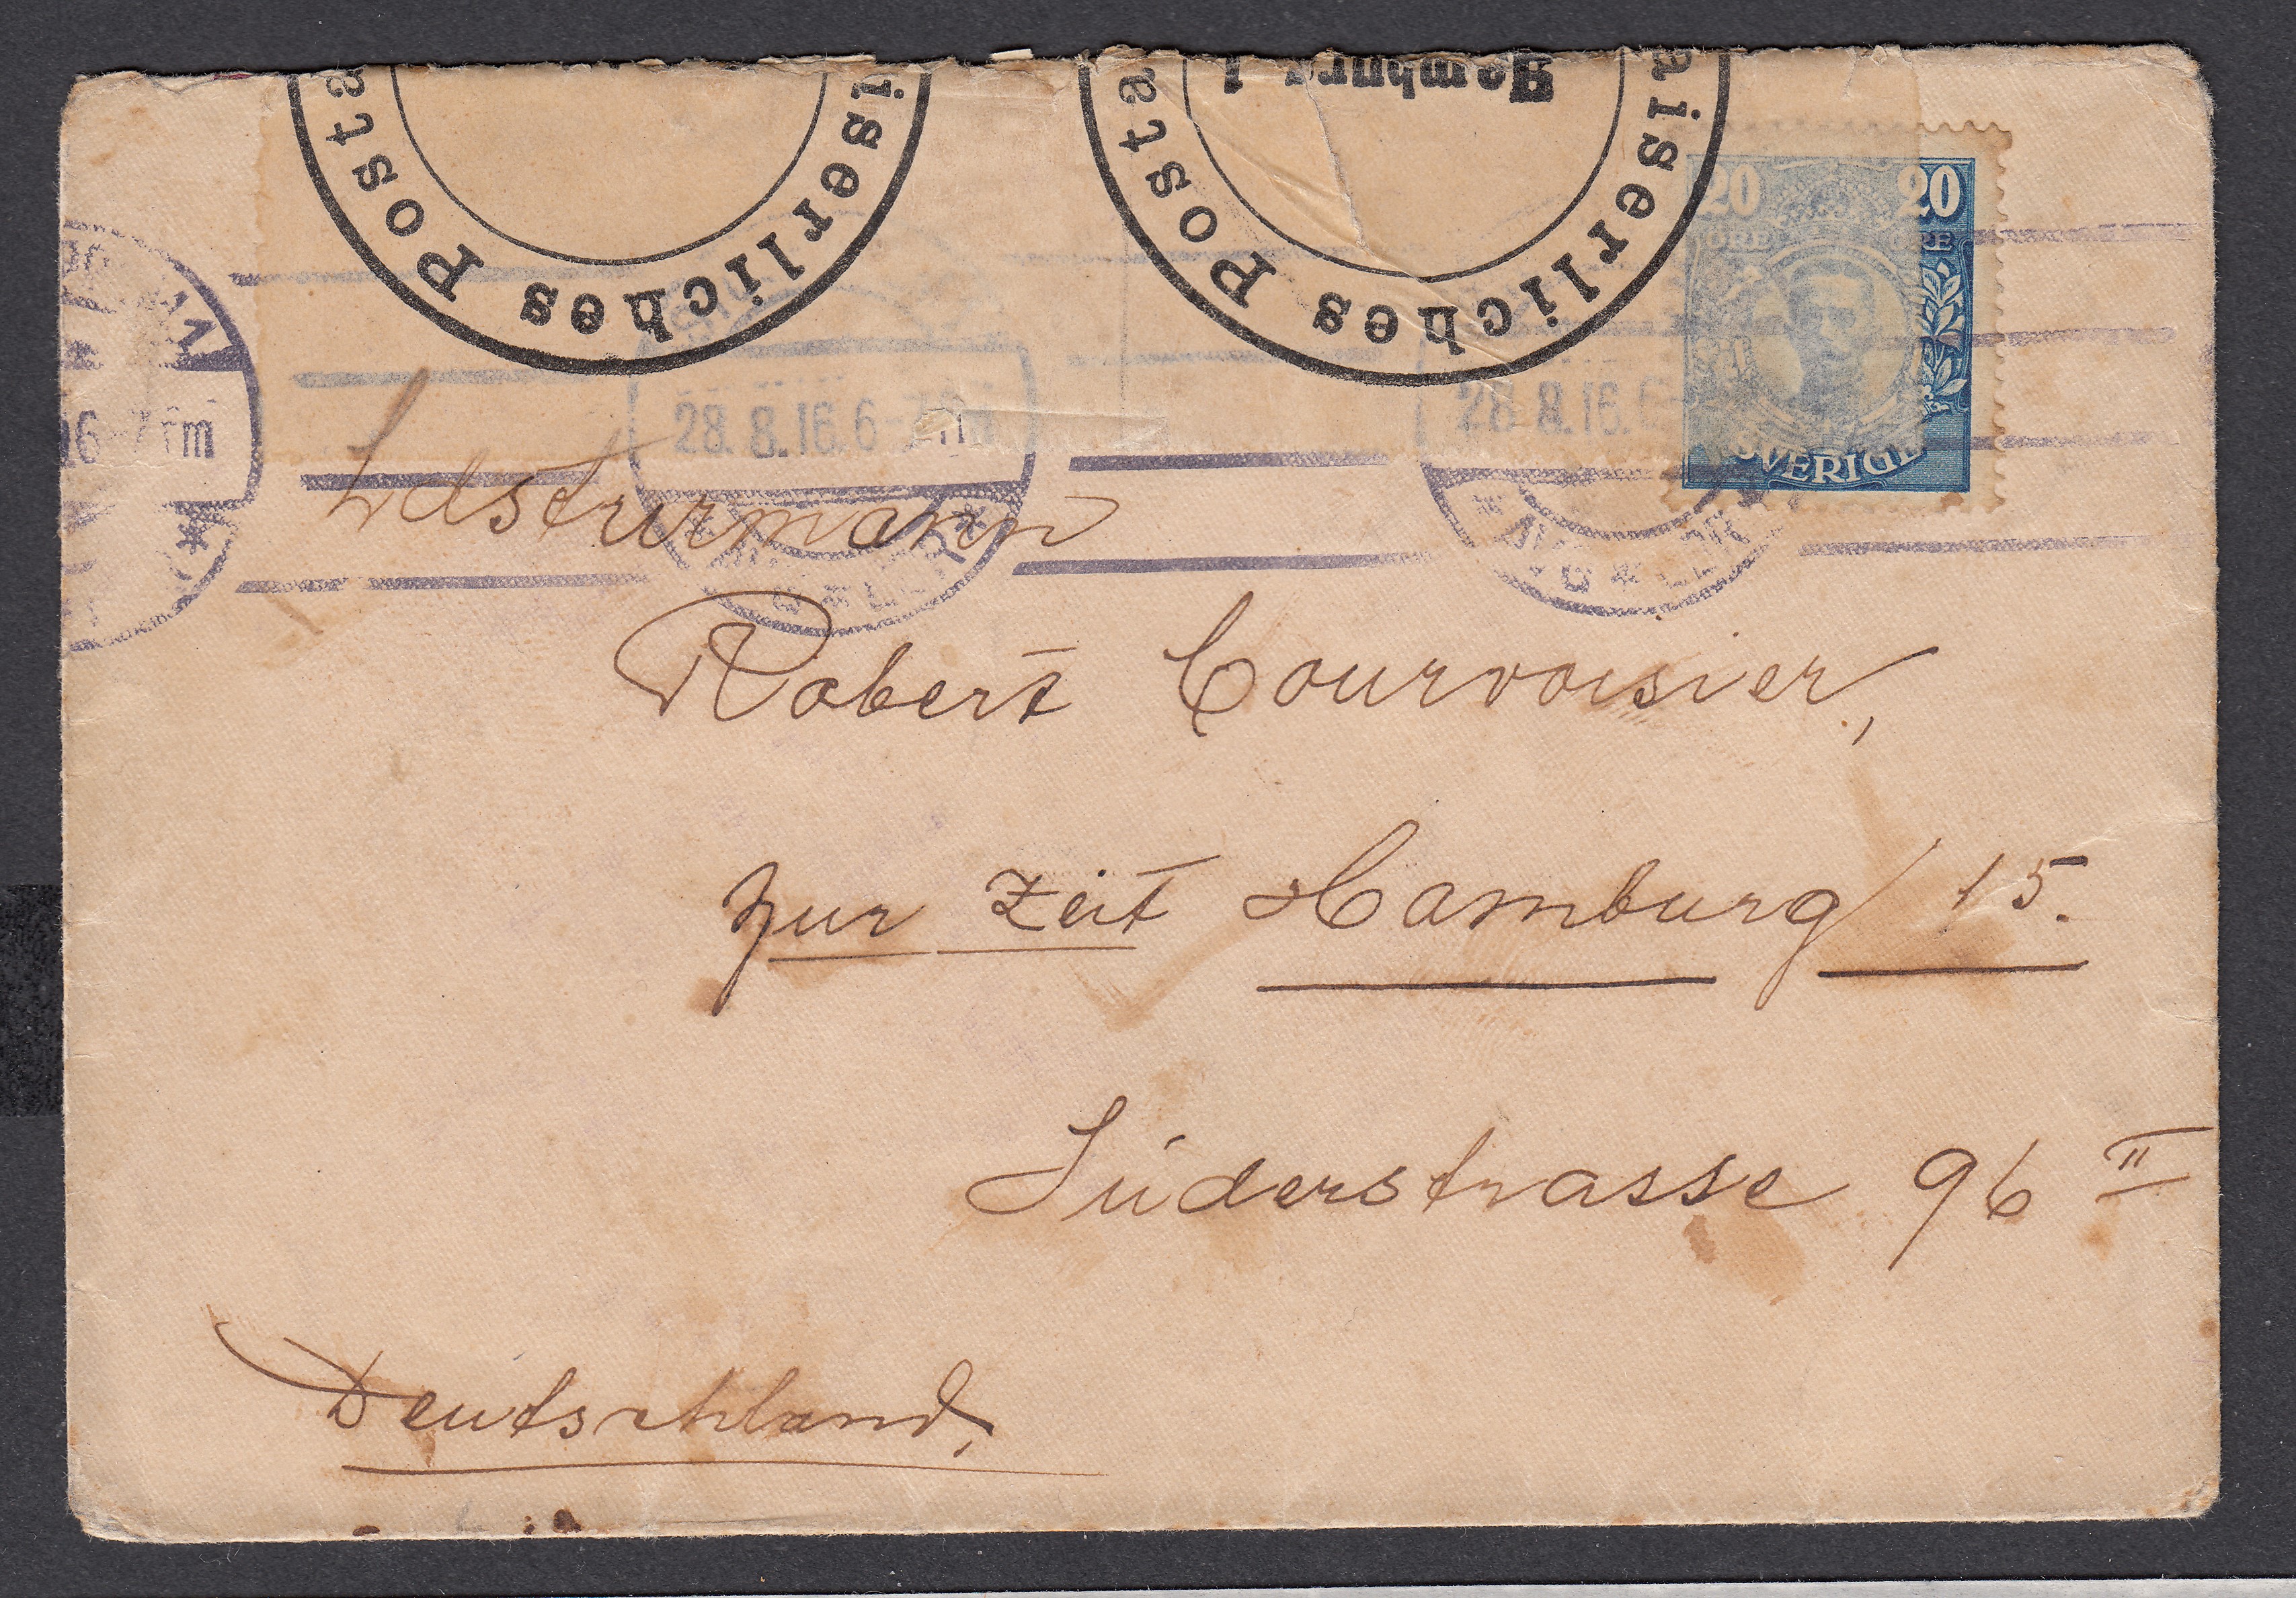 Kaiserliches Posta
aiserliches Posta
Hamburg 1
20 20
ÖRE ÖRE
SVERIGE
28.8.16.6-7
28.8.16.6-
16-7 fm
Ldsturmann
Robert Courvoisier,
zur Zeit Hamburg 15.
Süderstrasse 96 II
Deutschland.